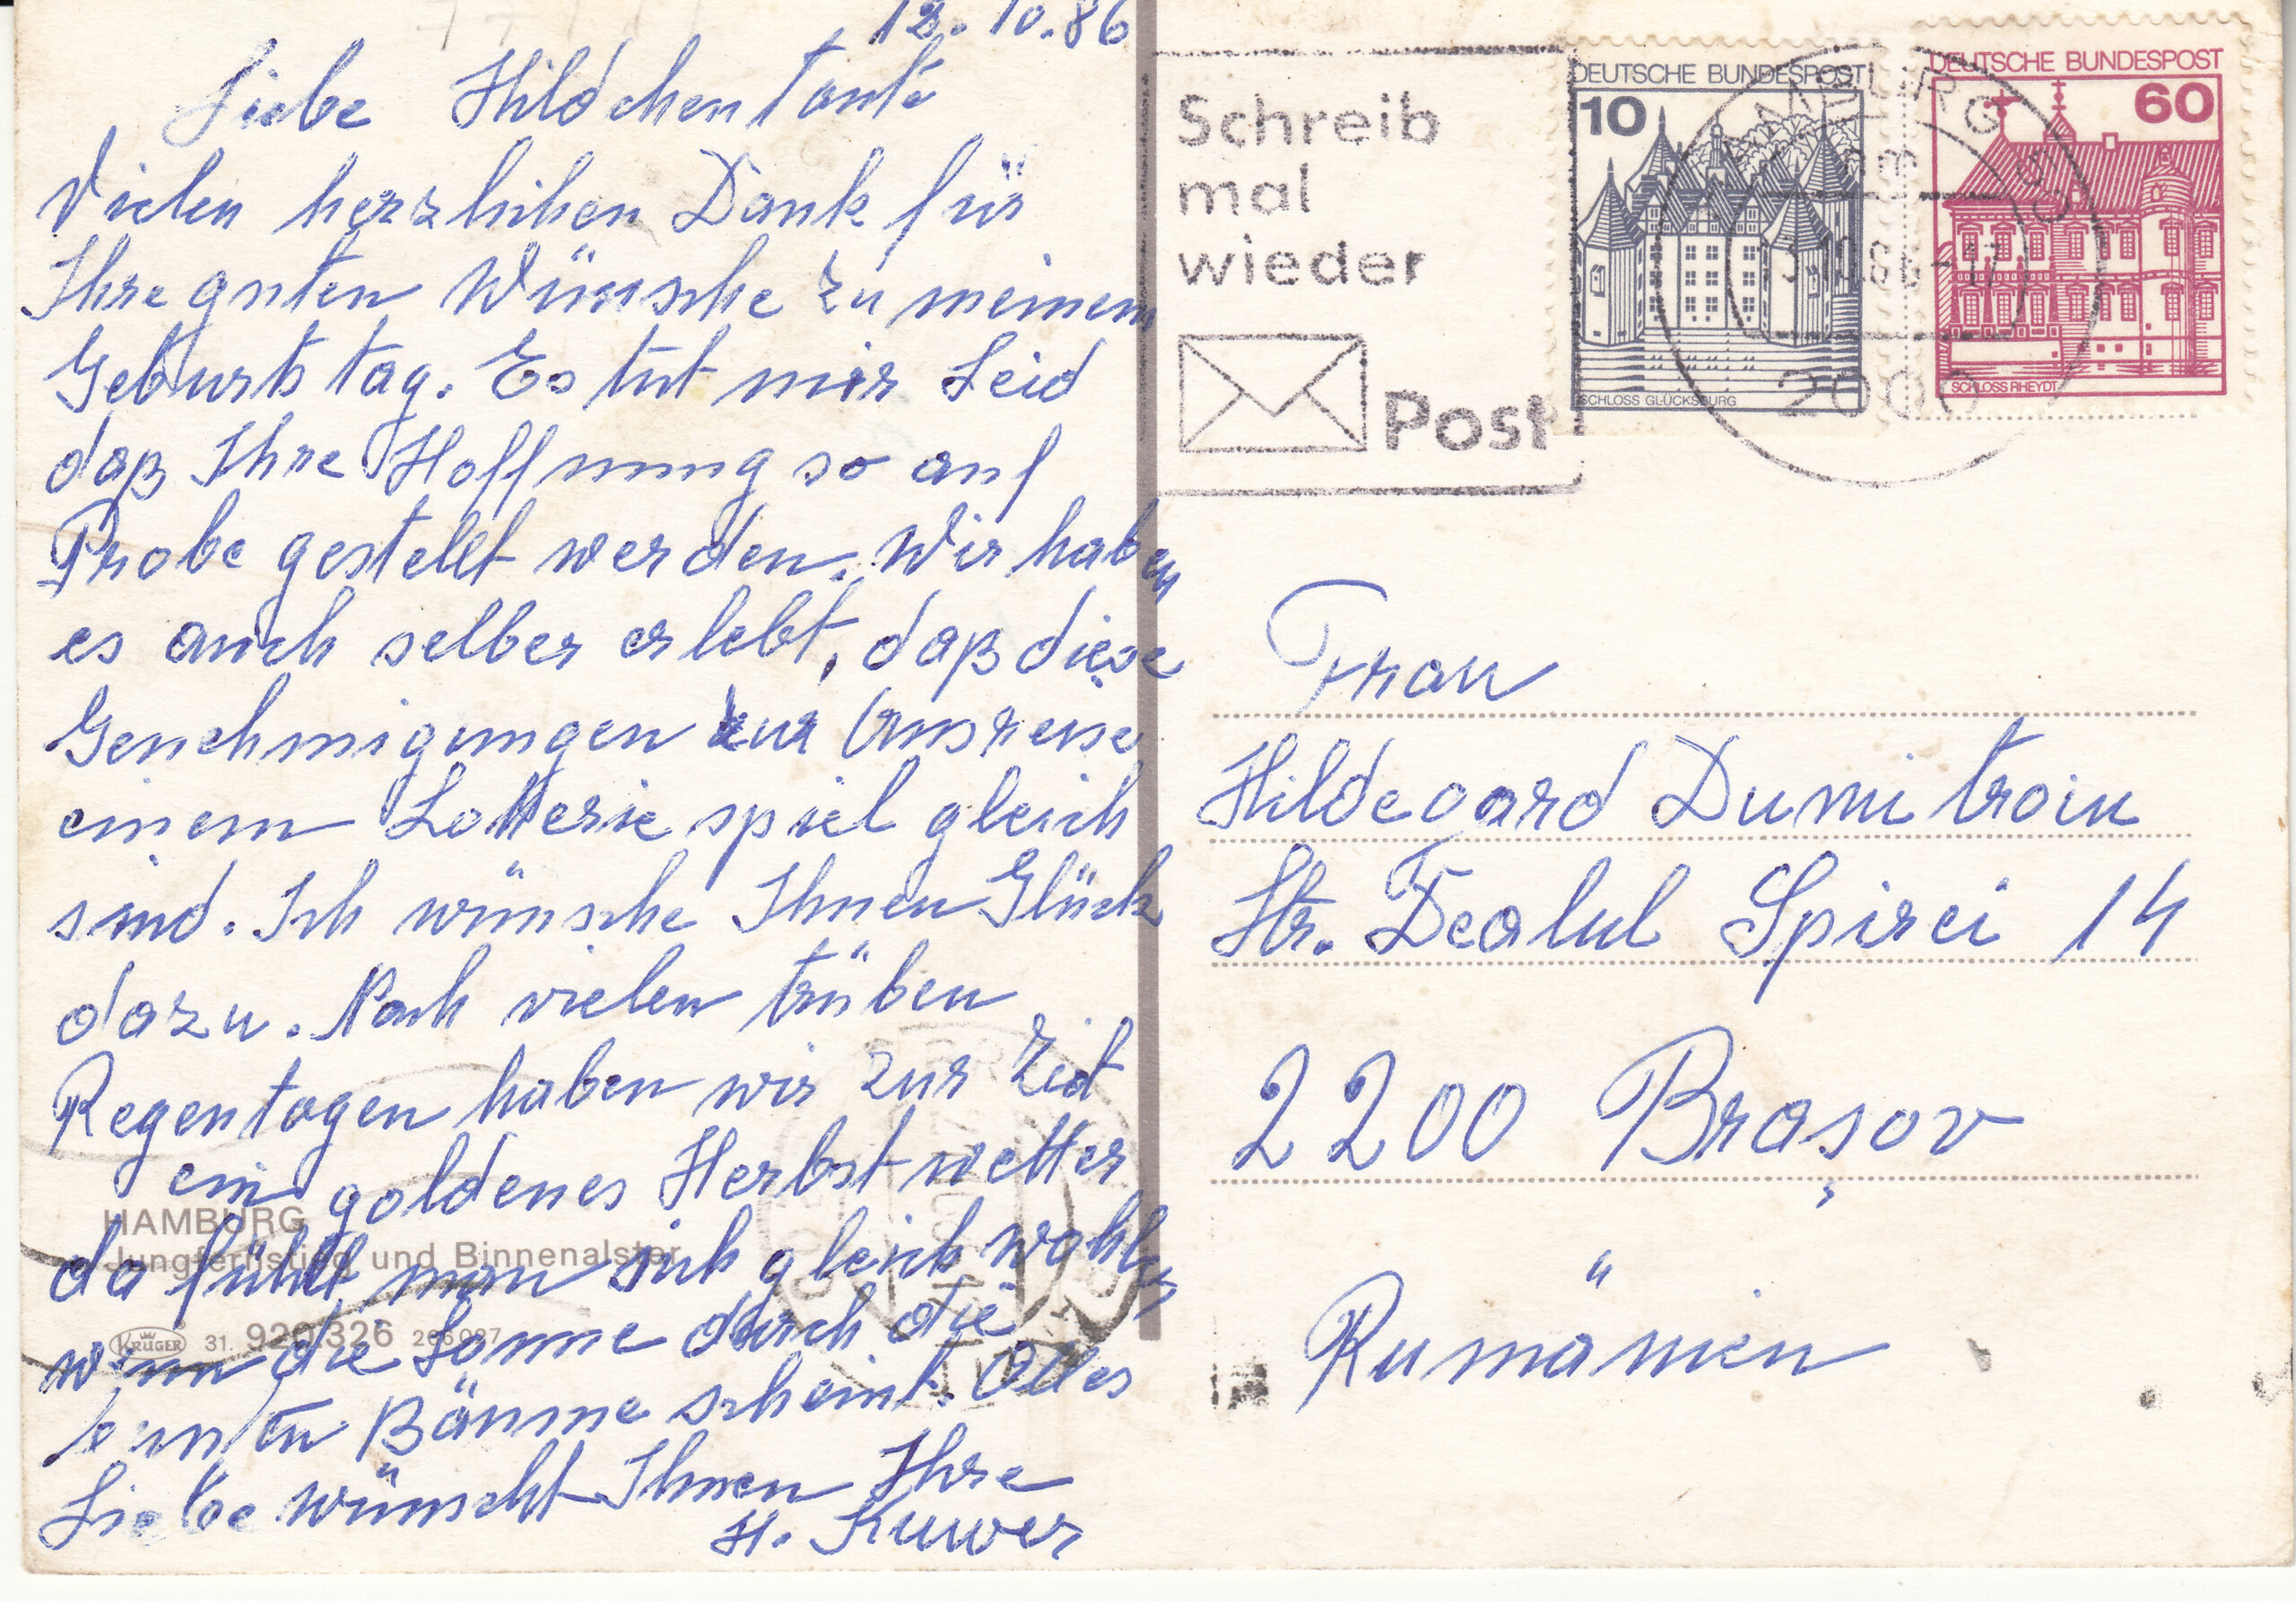 12.10.86
Liebe Hildchentante
Vielen herzlichen Dank für
Ihre guten Wünsche zu meinem
Geburtstag. Es tut mir Leid
daß Ihre Hoffnung so auf
Probe gestellt werden. Wir haben
es auch selber erlebt, daß diese
Genehmigungen zur Ausreise
einem Lotteriespiel gleich
sind. Ich wünsche Ihnen Glück
dazu. Nach vielen trüben
Regentagen haben wir zur Zeit
ein goldenes Herbstwetter
da fühlt man sich gleich wohler
wenn die Sonne durch die
bunten Bäume scheint. Alles
Liebe wünscht Ihnen Ihre
H. Kuwer
HAMBURG
Jungfernstieg und Binnenalster
KRÜGER 31. 920/326
Schreib
mal
wieder
Post
DEUTSCHE BUNDESPOST
10
SCHLOSS GLÜCKSBURG
DEUTSCHE BUNDESPOST
60
SCHLOSS RHEYDT
2000
Frau
Hildegard Dumitroiu
Str. Dealul Spirei 14
2200 Brașov
Rumänien